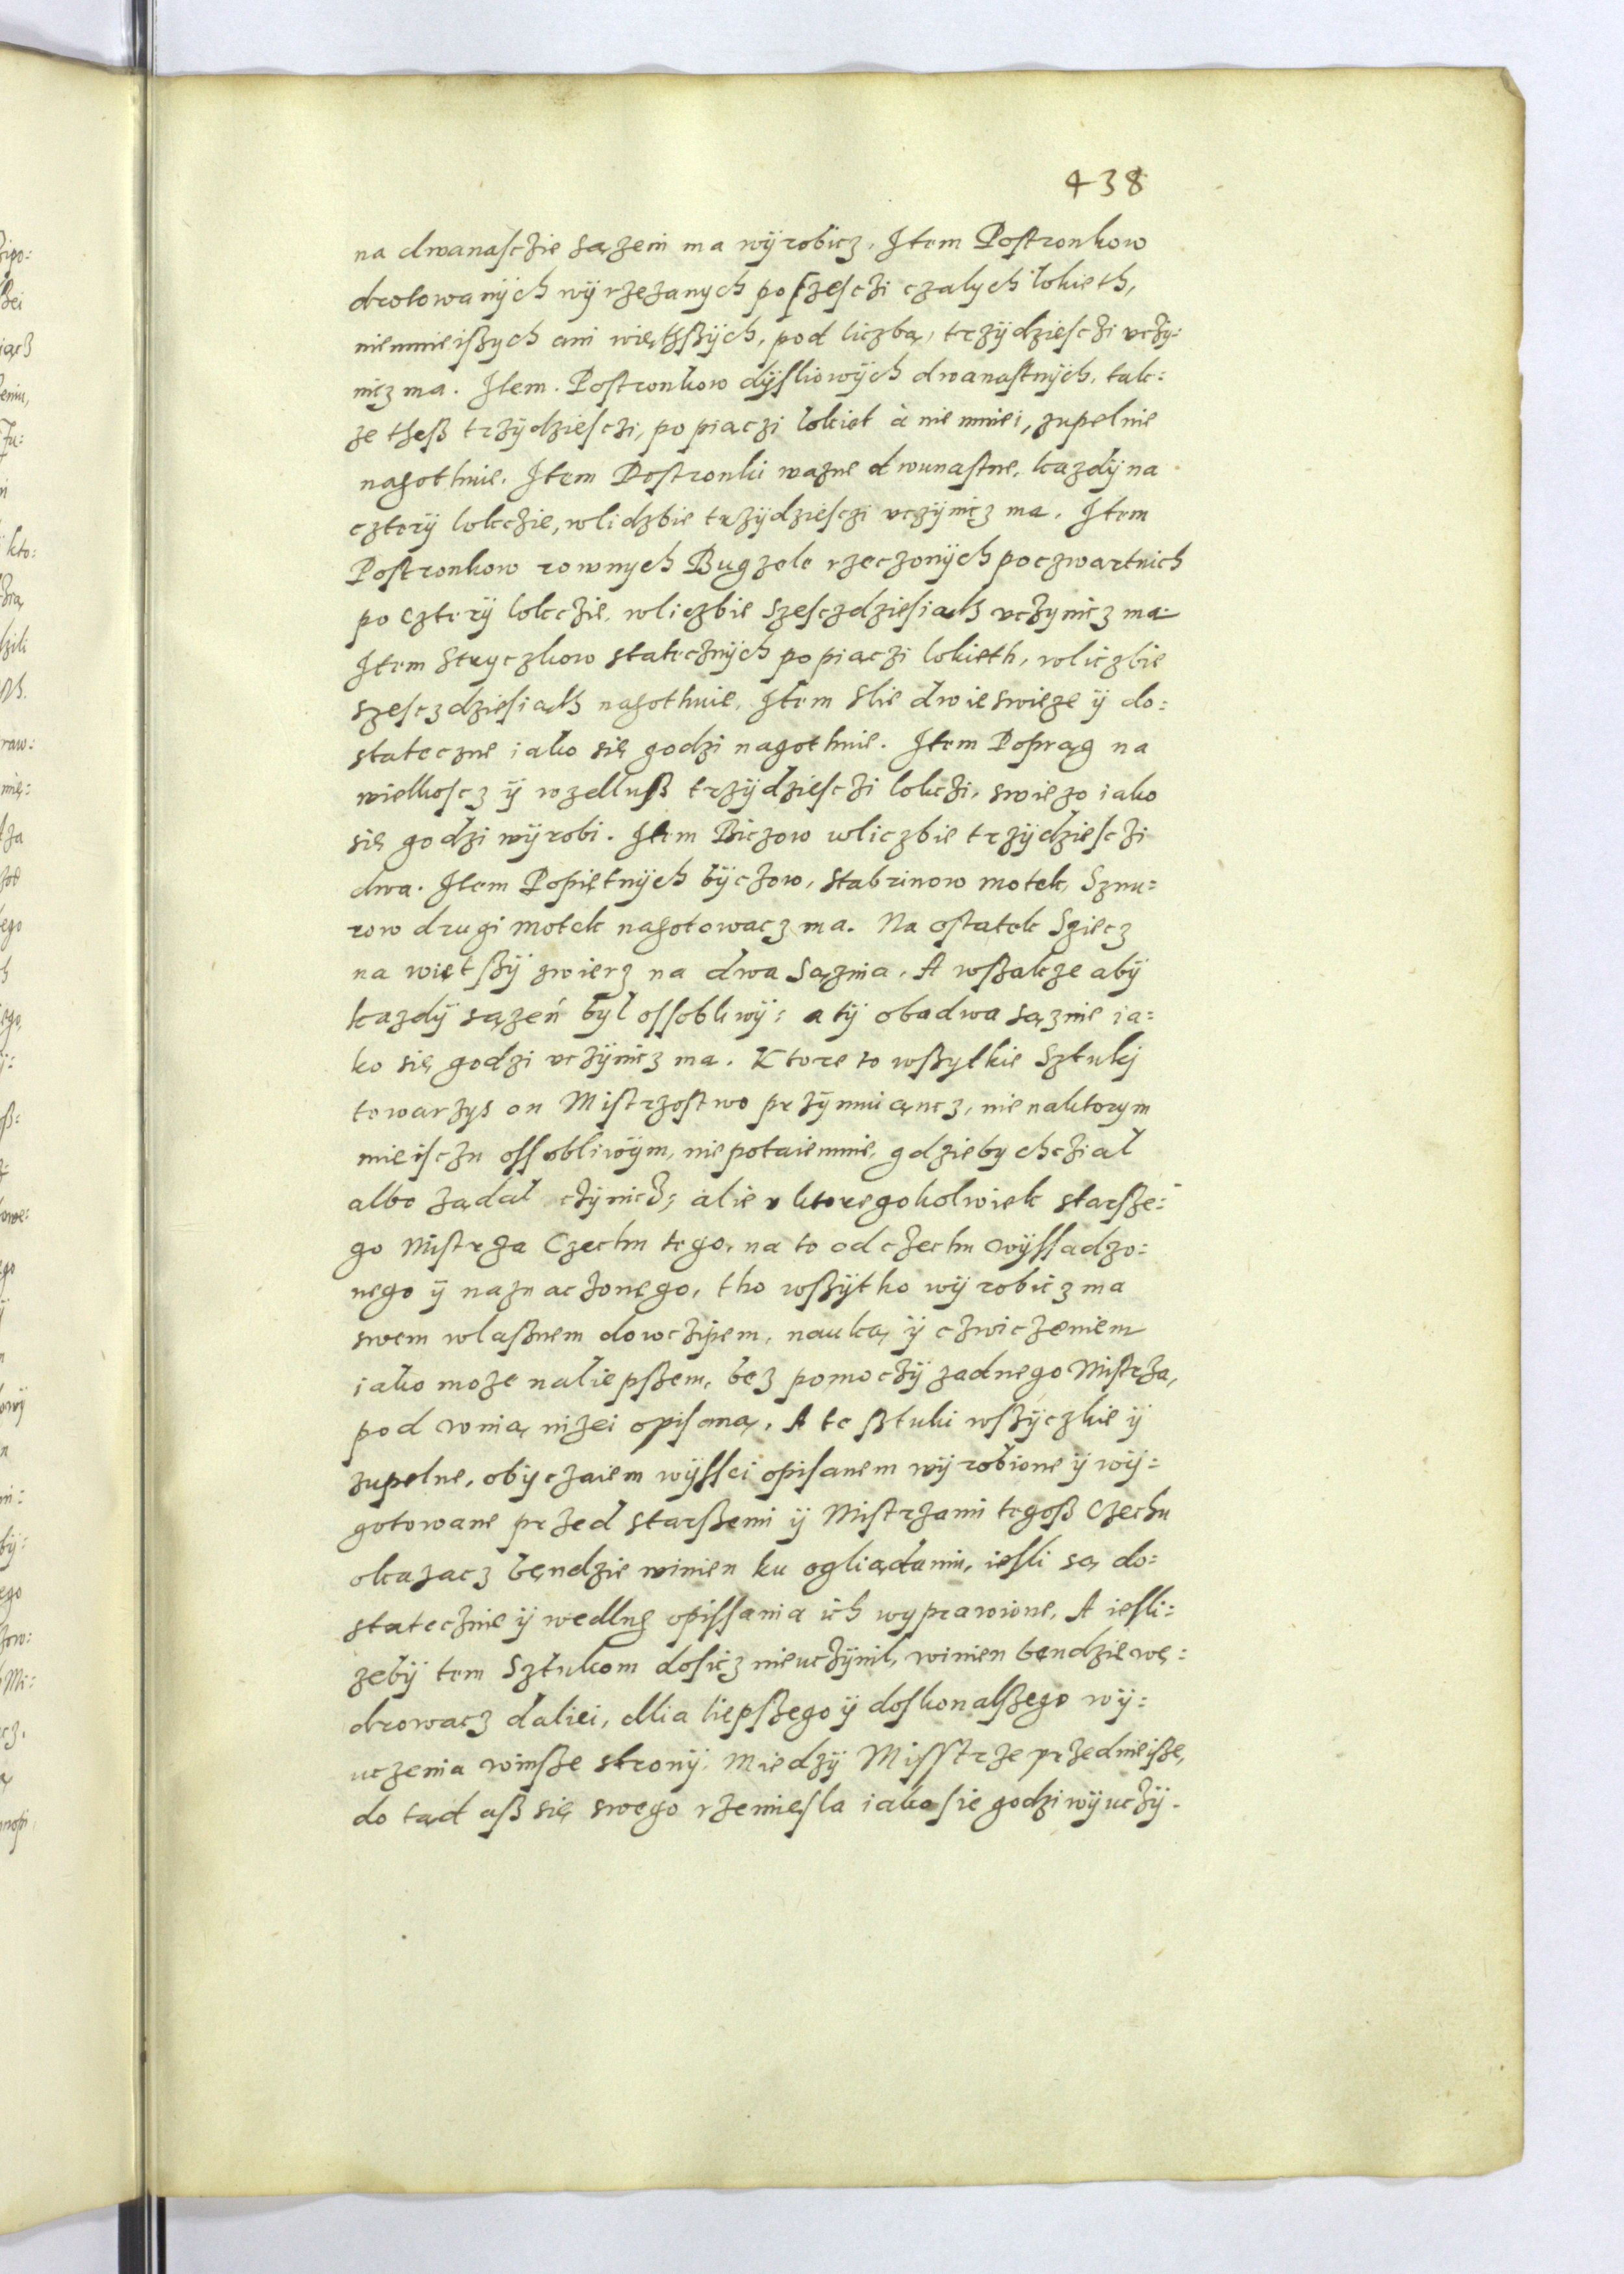 438
na dwanaſczie sązem ma wÿrobicz. Item Poſtronkow
drotowanÿch wÿrzezanych po ſzeſczi czalych lokieth,
niemnieiſzych ani więthſzÿch, pod liczbą, trzÿdzieſczi vczÿ:
nicz ma. Item. Poſtronkow dÿſliowÿch dwanaſtnÿch, tak:
ze theſz trzÿdzieſczi, po piaczi lokiet à nie mniei, zupelnie
nagothuie. Item Poſtronki wazne dwunaſtne, kazdÿ na
czterÿ lokczie, wlidzbie trzÿdzieſczi vczÿnicz ma. Item
Poſtronkow rownych Bugzele rzeczonÿch poczwartnich
po czterÿ lokczie, wliczbie Szeſczdzieſiath vczynicz ma
Item Stryczkow statecznÿch po piaczi lokieth, wliczbie
szeſczdzieſiath nagothuie, Item Slie dwie swieze ÿ do:
stateczne iako się godzi nagothuie. Item Poprąg na
wielkoſcz ÿ wzdluſz trzÿdzieſczi lokczi, swiezo iako
się godzi wÿrobi. Item Biczow wliczbie trzÿdzieſczi
dwa. Item Popiętnÿch bÿczow, stabrinow motek, Sznu:
row drugi motek nagotowacz ma. Na oſtatek Sziecz
na więtſzÿ zwierz na dwa Sąznia. A wſzakze abÿ
kazdÿ sązeń byl oſſobliwÿ: a tÿ obadwa sąznie ia:
ko się godzi vczÿnicz ma. Ktore to wſzytkie Sztukj
towarzys on Miſtrzoſtwo przÿmuiąncz, nie naktorym
mieiſczu oſſobliwÿm, niepotaiemnie, gdzieby chcział
albo ządał czÿnicz, alie v ktoregokolwiek starſze:
go Miſtrza Czechu tego, na to od czechu wÿſſadzo:
nego ÿ naznaczonego, tho wſzÿtko wÿrobicz ma
swem wlaſznem dowczipem, nauką ÿ czwiczeniem
iako moze naliepſzem, bez pomoczÿ zadnego Miſtrza,
pod winą nizei opiſaną. A te ſztuki wſzÿczkie ÿ
zupelne, obÿczaiem wÿſſei opiſanem wÿrobione ÿ wÿ:
gotowane przed starſzemi ÿ Miſtrzami tegoſz Czechu
okazacz będzie winien ku ogliądaniu, ieſli są do:
statecznie ÿ wedlug opiſſania ich wyprawione, A ieſli:
zebÿ tem Sztukom doſicz nieuczÿnil, winien bendzie wę:
drowacz daliei, dlia liepſzego ÿ doſkonalſzego wÿ:
uczenia winſze stronÿ. Miedzÿ Miſſtrze przednieiſze,
do tąd aſz się swego rzemieſla iako sie godzi wÿuczÿ.